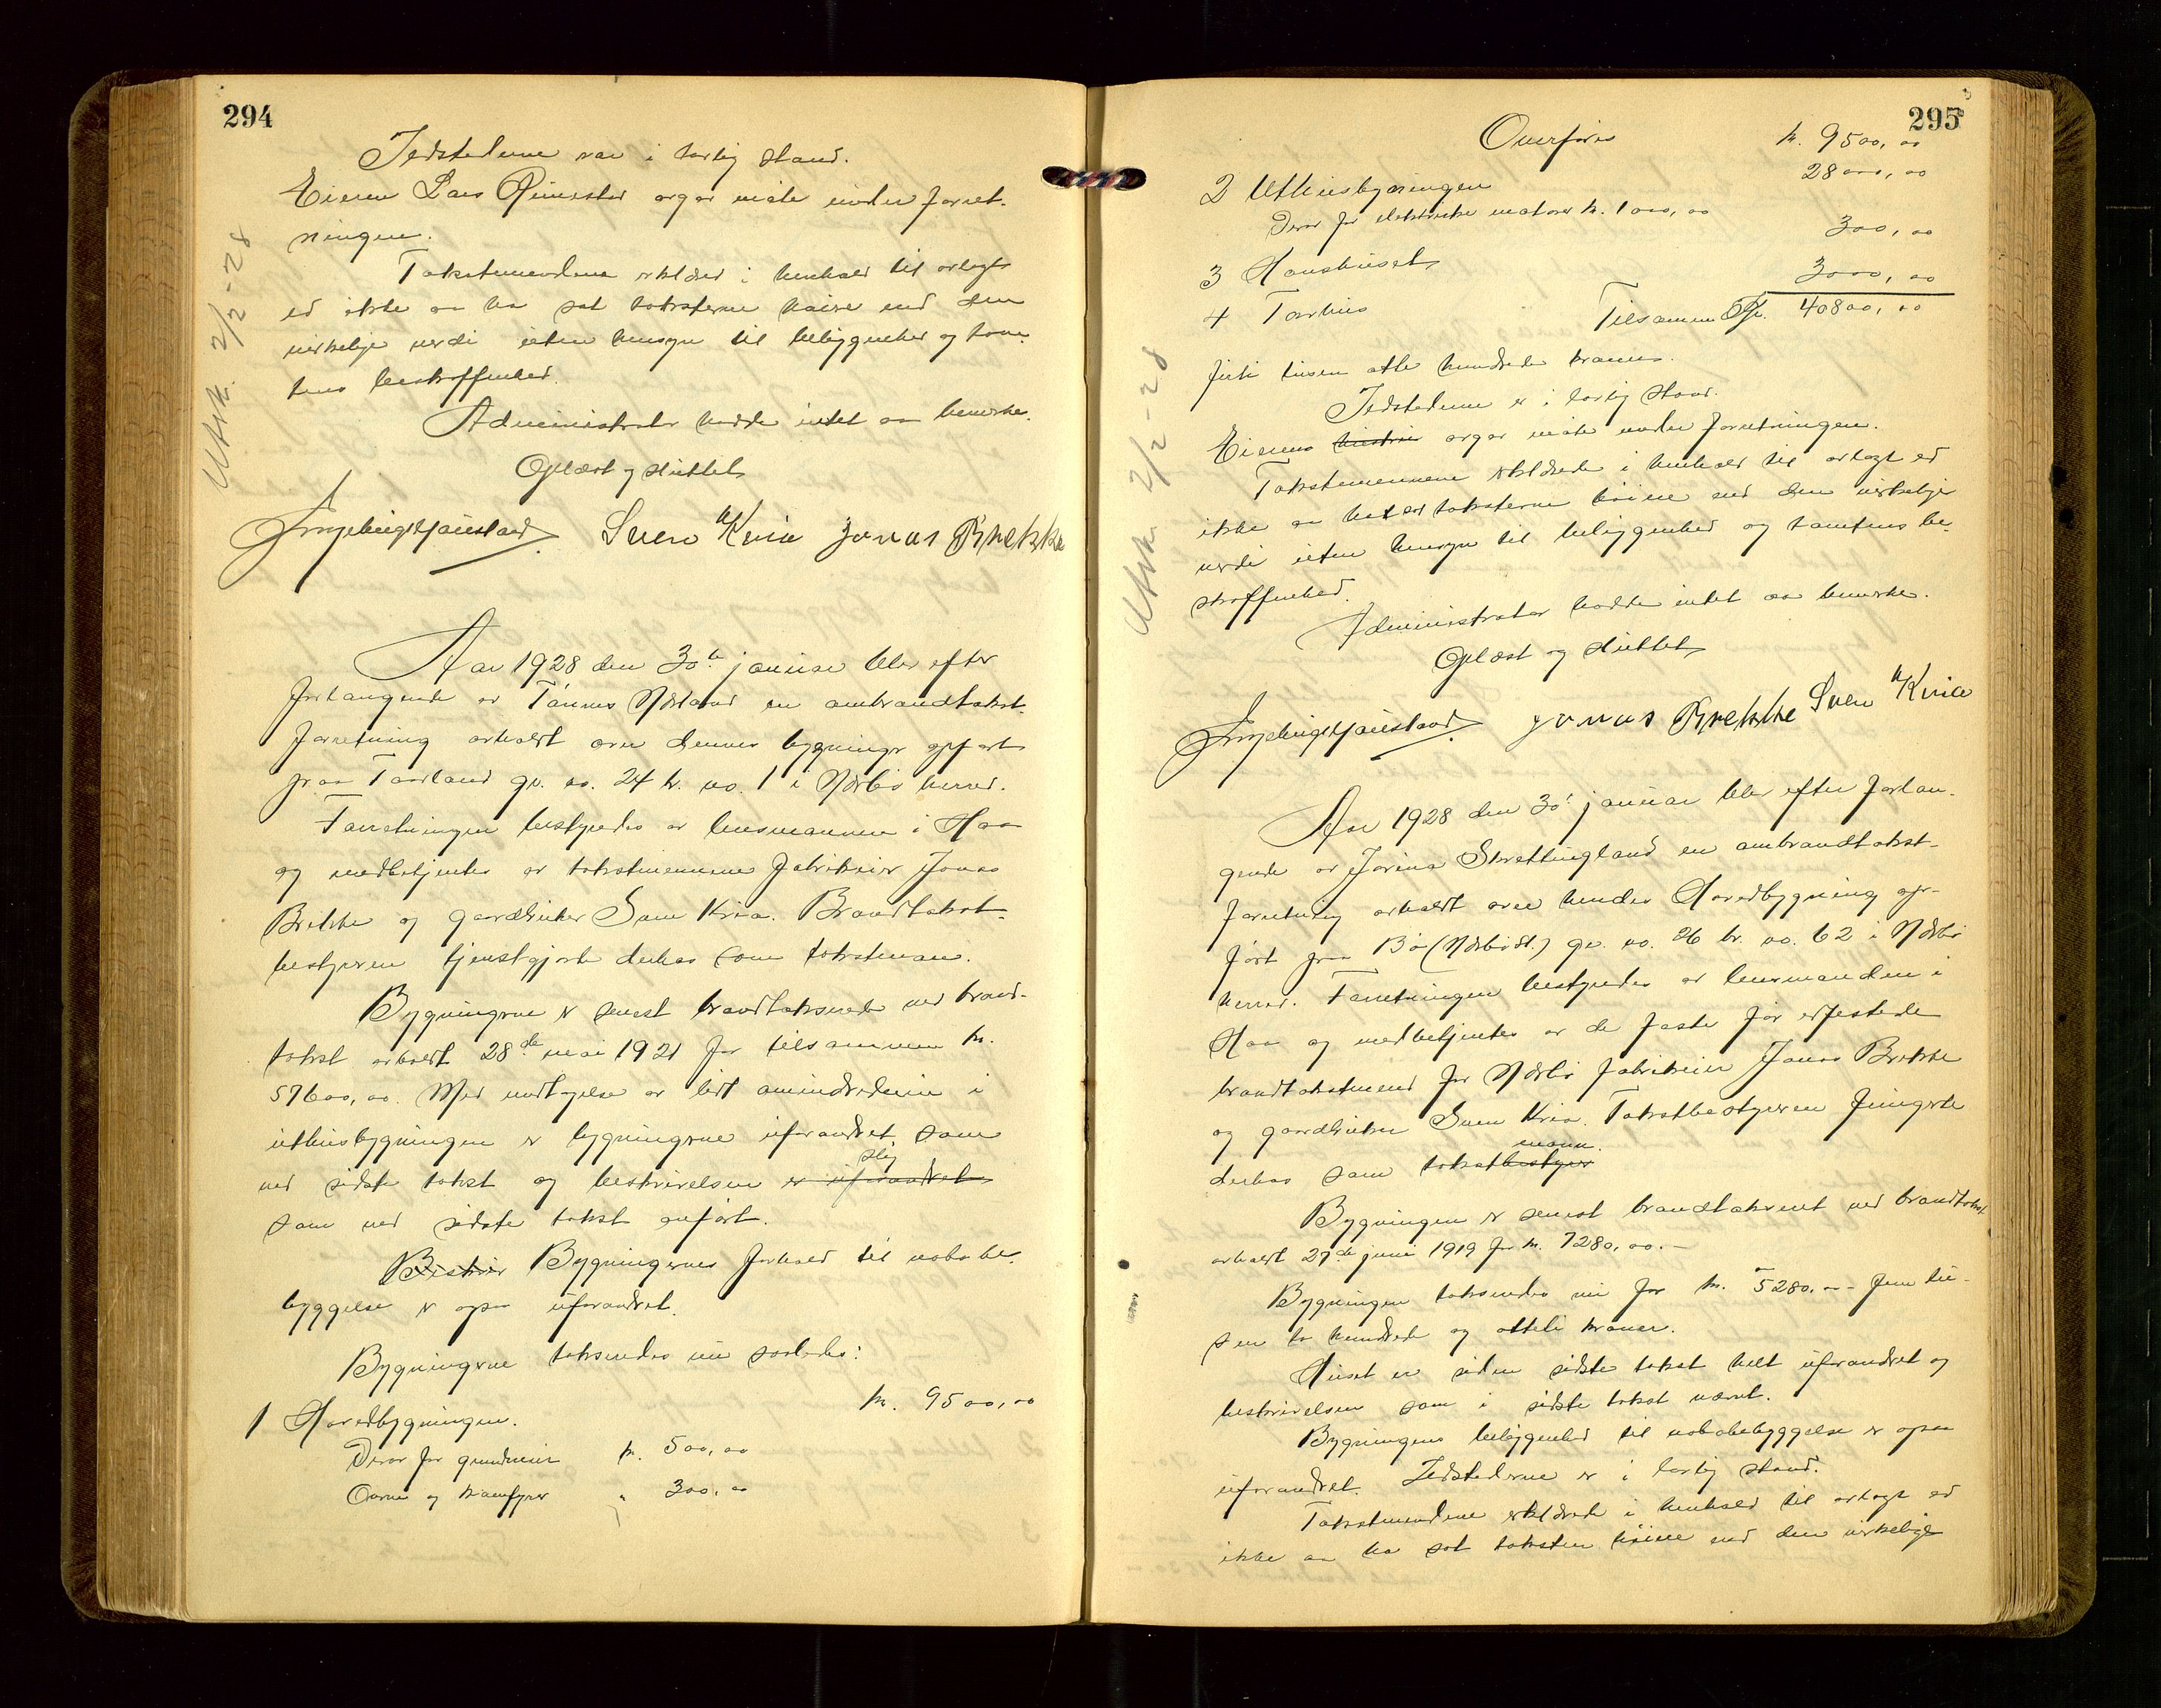 294
Ildstederne var i lovlig stand.
Eieren Lars Rimestad avgav møte under forret-
ningen.
Takstmendene erklæred i henhold til avlagt
ed ikke aa ha sat taksterne høiere end den
virkelige verdi uten hensyn til beliggenhet og tom-
tens beskaffenhed.
Administrator hadde intet aa bemerke.
Oplæst og sluttet
Sven Kvia Jonas Brekke
Utsk. 2/2-28
Aar 1928 den 30te januar blev efter
forlangende av Tønnes Nærland en ombrandtakst-
forretning avholdt over dennes bygninger opført
paa Taarland gr. no. 24 br. no. 1 i Nærbø herred.
Forretningen bestyredes av lensmannen i Haa
og medbetjentes av takstmennene fabrikeier Jonas
Brekke og gaardbruker Sven Kvia. Brandtakst-
bestyreren tjenstgjorde derhos som takstman.
Bygningerne er senest brandtakserede ved brand-
takst avholdt 28de mai 1921 for tilsammen kr.
57600,00. Med undtagelse av litt omindredning i
uthusbygningen er bygningerne uforandret som
ved sidste takst og beskrivelsen er uforandret slig
som ved sidste takst anført.
Beskriv Bygningernes forhold til nabobe-
byggelse er ogsaa uforandret.
Bygningerne takseredes nu saaledes:
1 Hovedbygningen. kr. 9500,00
Derav for grundmur kr. 500,00
Ovne og komfyrer " 300,00
295
Overføres kr. 9500,00
2 Uthusbygningen 28000,00
Derav for elektriske motorer kr. 1000,00
3 Hønsehuset 300,00
4 Torvhus 3000,00
Tilsammen Kr. 40800,00
firti tusen otte hundrede kroner.
Ildstederne er i lovlig stand.
Eierens hustru avgav møte under forretningen.
Takstmennene erklærede i henhold til avlagt ed
ikke aa ha sat taksterne høiere end den virkelige
verdi uten hensyn til beliggenhed og tomtens be-
skaffenhed.
Administrator hadde intet aa bemerke.
Oplæst og sluttet
Jonas Brekke Sven Kvia
Utsk 2/2-28
Aar 1928 den 30t januar blev efter forlan-
gende av Jorina Skrettingland en ombrandtakst-
forretning avholdt over hendes Hovedbygning op-
ført paa Bø (Nærbø st.) gr. no. 26 br. no. 62 i Nærbø
herred. Forretningen bestyredes av lensmanden i
Haa og medbetjentes av de faste før edfestede
brandtakstmend for Nærbø fabrikeier Jonas Brekke
og gaardbruker Sven Kvia. Takstbestyreren fungerte
derhos som takstbestyrer mann.
Bygningen er senest brandtakseret ved brandtakst
avholdt 27de juni 1919 for kr. 7280,00.-
Bygningen takseredes nu for kr. 5280.00- fem tu-
sen to hundrede og otteti kroner.
Huset er siden sidste takst helt uforandret og
beskrivelsen som i sidste takst nævnt.
Bygningens beliggenhed til nabobebyggelse er ogsaa
uforandret. Ildstederne er i lovlig stand.
Takstmendene erklærede i henhold til avlagt ed
ikke aa ha sat taksten høiere end den virkelige